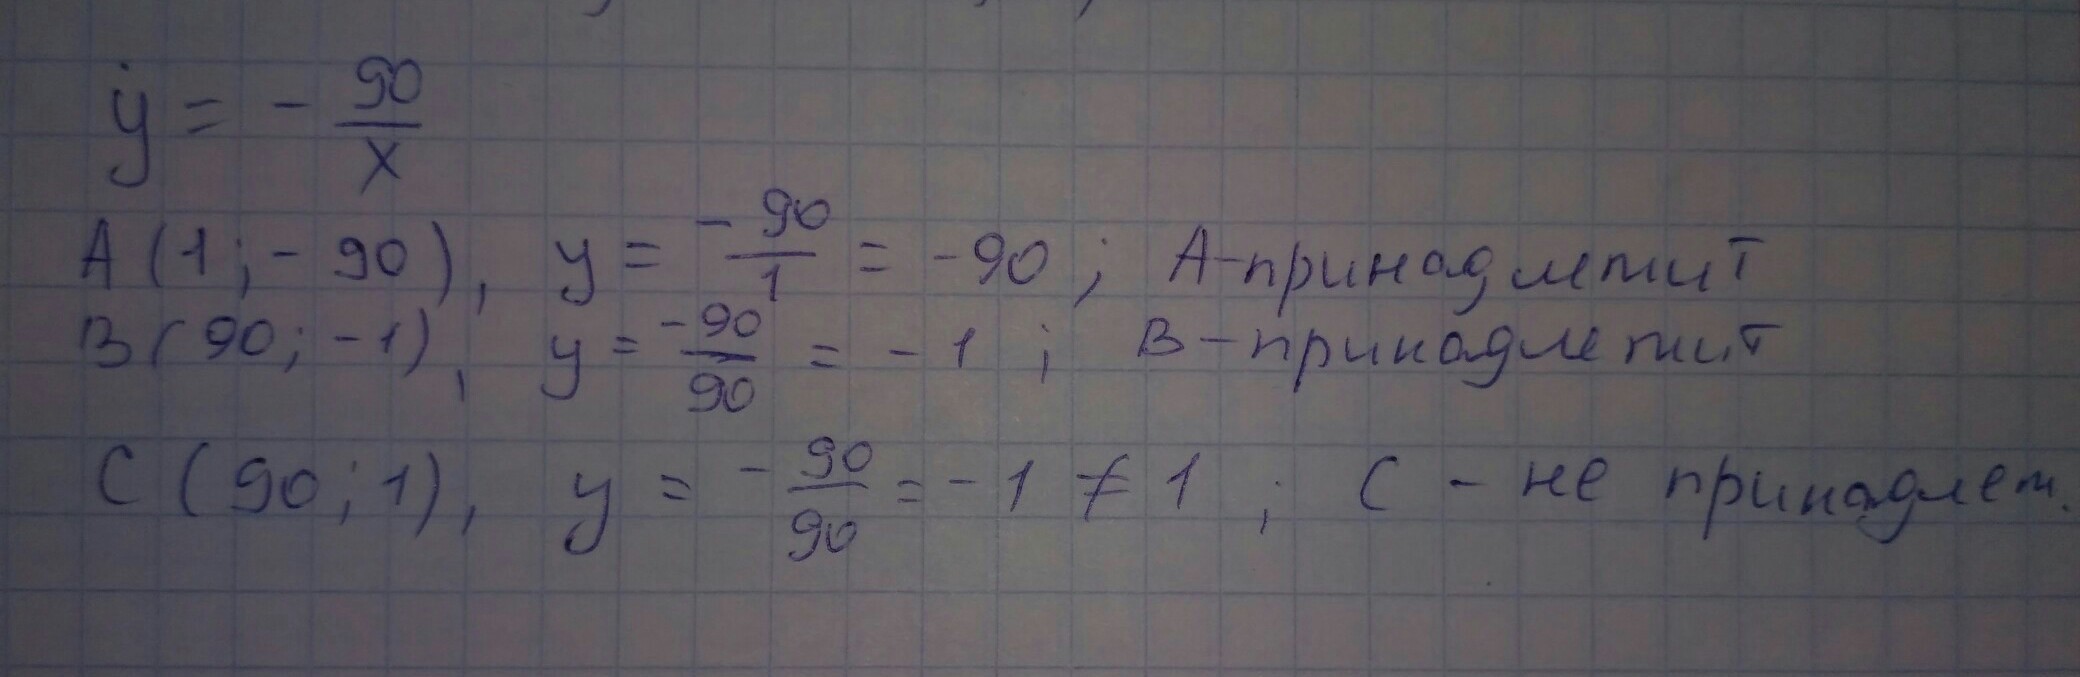 y = - 90/x
A (1; - 90), y = - 90/1 = - 90; A - принадлежит
B (90; - 1), y = - 90/90 = - 1; B - принадлежит
C (90; 1), y = - 90/90 = - 1 ≠ 1; C - не принадлеж.